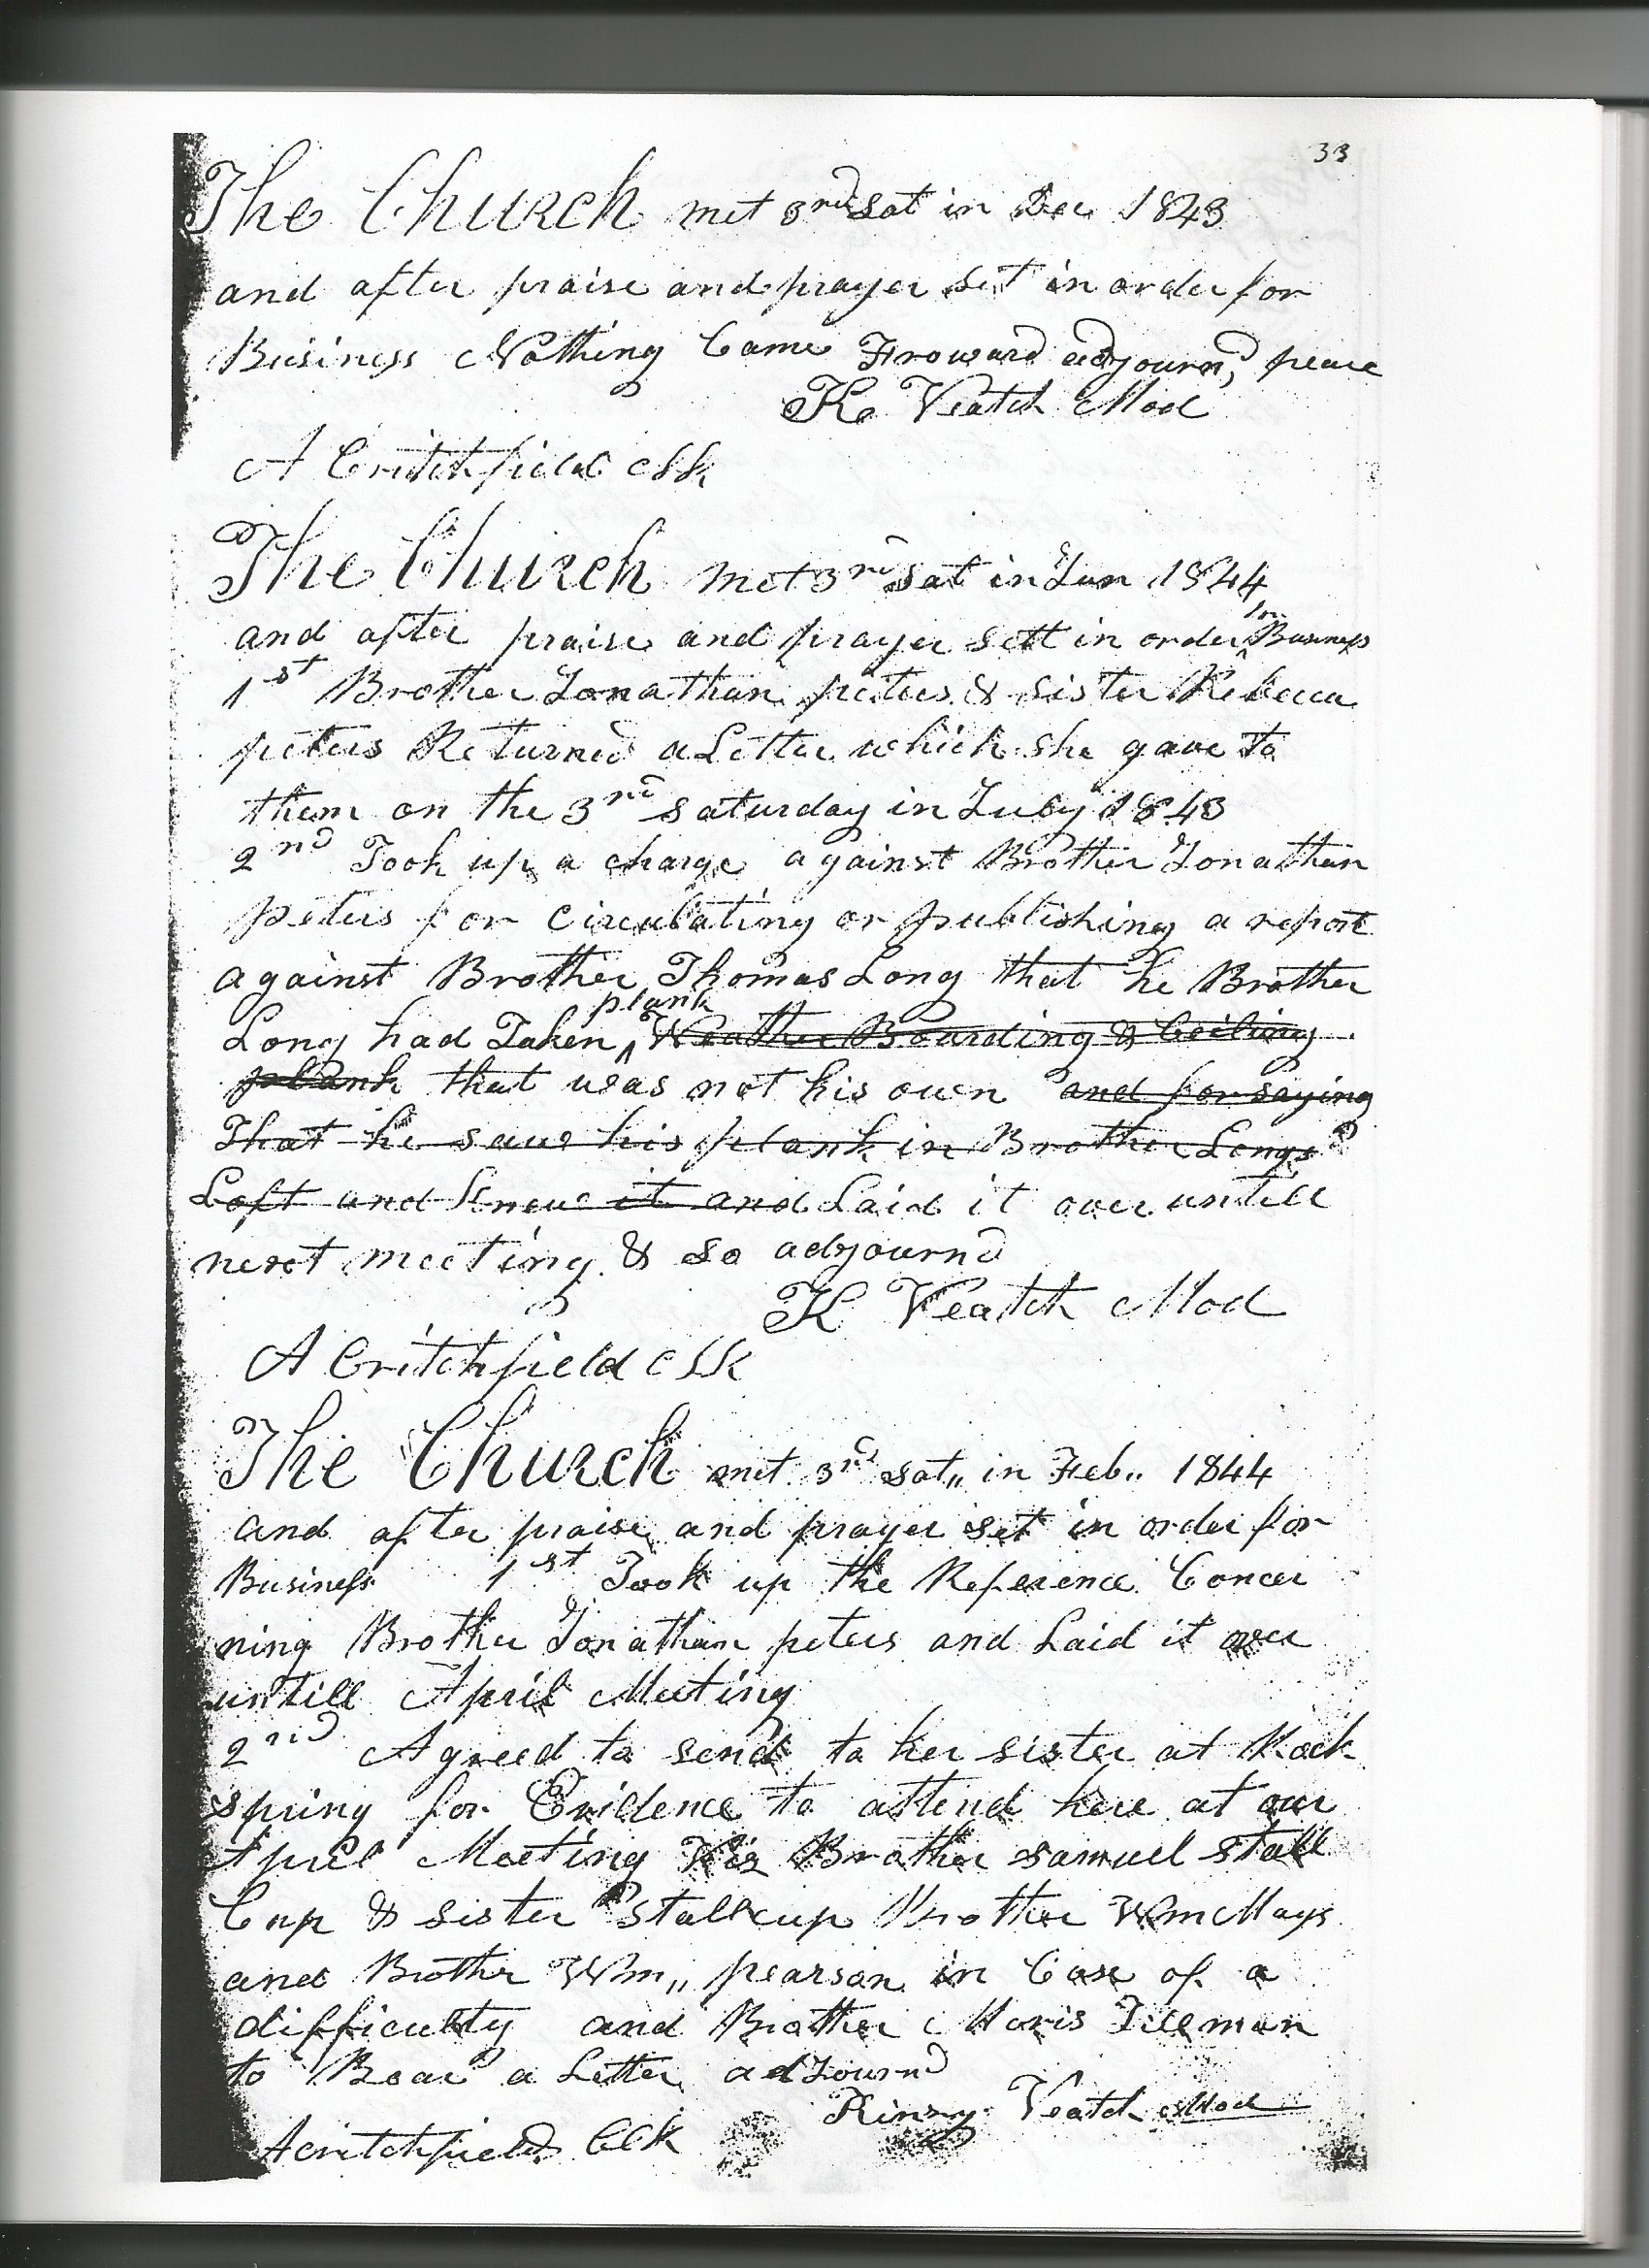 33
The Church met 3rd Sat in Dec 1843
and after praise and prayer set in order for
Business Nothing Came Froward adjournd, peace
K. Veatch Mod
A Critchfield Clk
The Church met 3rd Sat in Jan 1844
and after praise and prayer sett in order for Business
1st Brother Jonathan peters & sister Rebecca
peters Returned a Letter which she gave to
them on the 3rd saturday in July 1843
2nd Took up a charge against Brother Jonathan
peters for circulating or publishing a report
against Brother Thomas Long that he Brother
Long had Taken plank Weather Boarding & Ceiling
plank that was not his own and for saying
That he saw his plank in Brother Longs
Loft and Knew it and Laid it over untill
next meeting & so adjournd
K Veatch Mod
A Critchfield Clk
The Church met 3rd sat,, in Feb,, 1844
and after praise and prayer set in order for
Business 1st Took up the Reference Concer
ning Brother Jonathan peters and Laid it over
untill April Meeting
2nd Agreed to send to her sister at Rock
spring for Evidence to attend here at our
April Meeting Viz Brother samuel stall
Cup & sister Stallcup Brother Wm Mays
and Brother Wm,, pearson in Case of a
difficulty and Brother Moris Tillman
to Bear a Letter adJournd
Kinzy Veatch Mod
A critchfield Clk